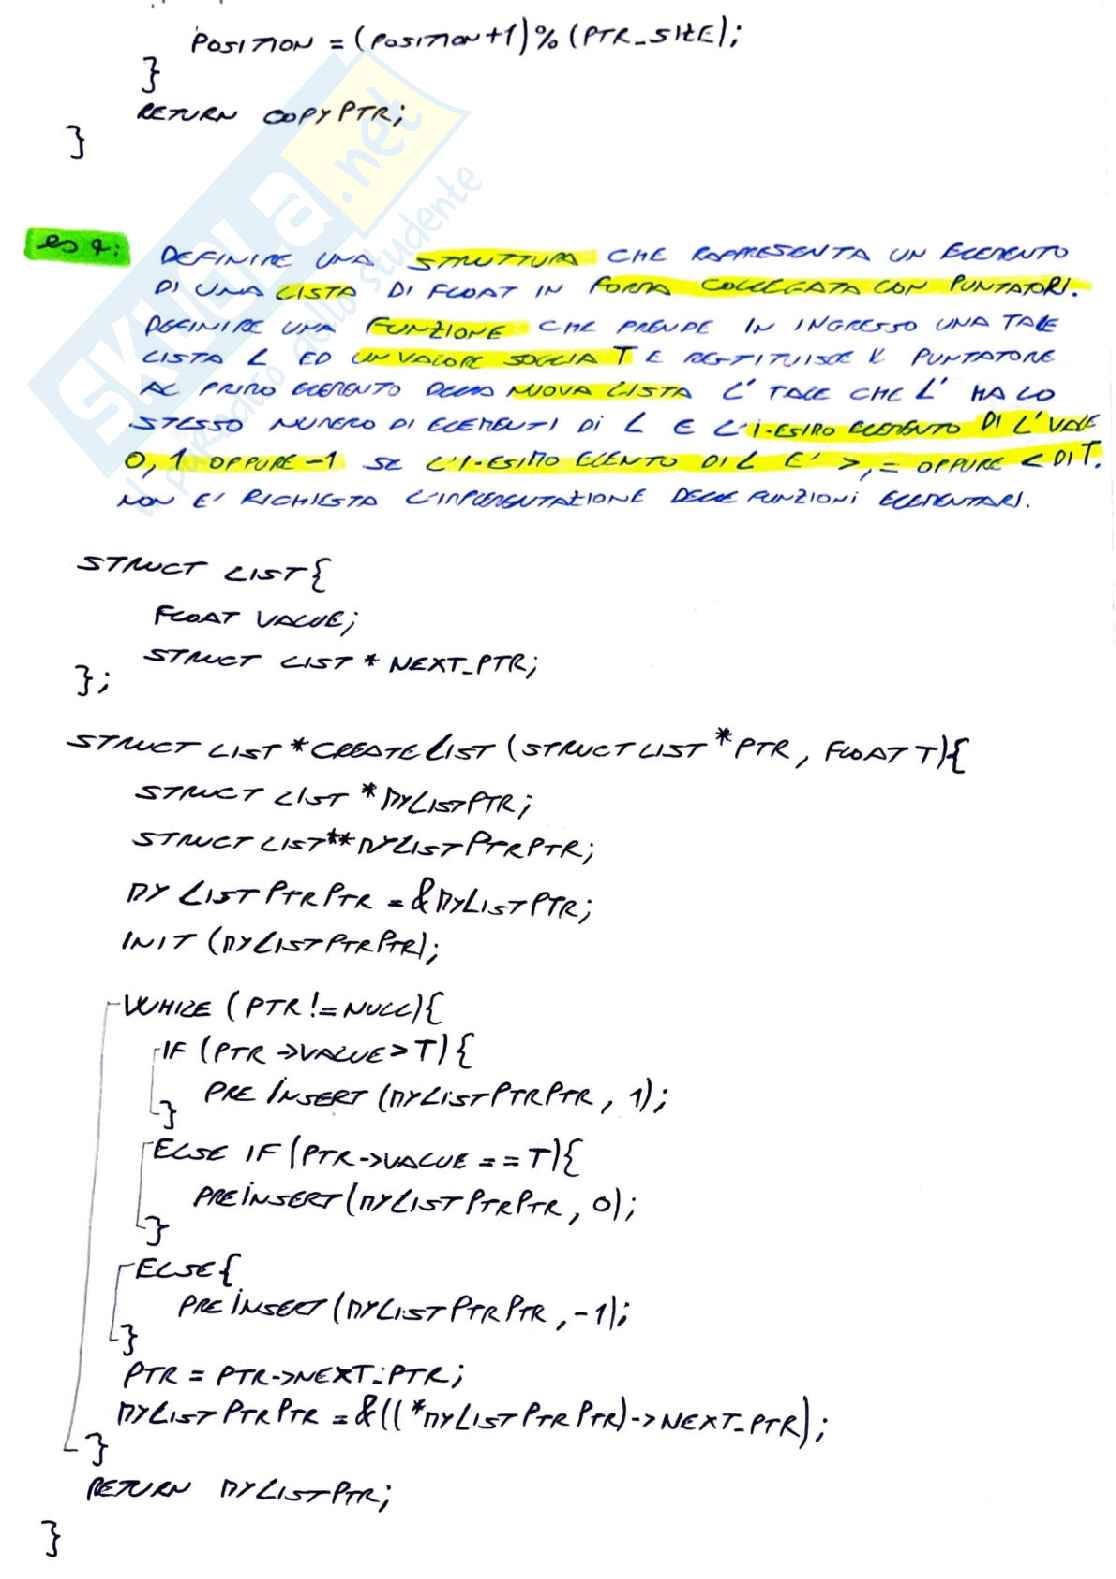 POSITION = (POSITION+1)%(PTR_SIZE);
}
RETURN COPYPTR;
}
es 2:
DEFINIRE UNA STRUTTURA CHE RAPPRESENTA UN ELEMENTO
DI UNA LISTA DI FLOAT IN FORMA COLLEGATA CON PUNTATORI.
DEFINIRE UNA FUNZIONE CHE PRENDE IN INGRESSO UNA TALE
LISTA L ED UN VALORE SOGLIA T E RESTITUISCE IL PUNTATORE
AL PRIMO ELEMENTO DELLA NUOVA LISTA L' TALE CHE L' HA LO
STESSO NUMERO DI ELEMENTI DI L E L'I-ESIMO ELEMENTO DI L' VALE
0, 1 OPPURE -1 SE L'I-ESIMO ELENTO DI L E' >, = OPPURE < DI T.
NON E' RICHIESTA L'IMPLEMENTAZIONE DELLE FUNZIONI ELEMENTARI.
STRUCT LIST{
FLOAT VALUE;
STRUCT LIST * NEXT_PTR;
};
STRUCT LIST *CREATELIST (STRUCT LIST *PTR, FLOAT T){
STRUCT LIST *MYLISTPTR;
STRUCT LIST** MYLISTPTRPTR;
MYLISTPTRPTR = &MYLISTPTR;
INIT (MYLISTPTRPTR);
WHILE (PTR != NULL){
IF (PTR ->VALUE > T) {
PREINSERT (MYLISTPTRPTR, 1);
}
ELSE IF (PTR->VALUE == T){
PREINSERT (MYLISTPTRPTR, 0);
}
ELSE{
PREINSERT (MYLISTPTRPTR, -1);
}
PTR = PTR->NEXT_PTR;
MYLISTPTRPTR = &((*MYLISTPTRPTR)->NEXT_PTR);
}
RETURN MYLISTPTR;
}
SKUOLA.net
il paradiso dello studente